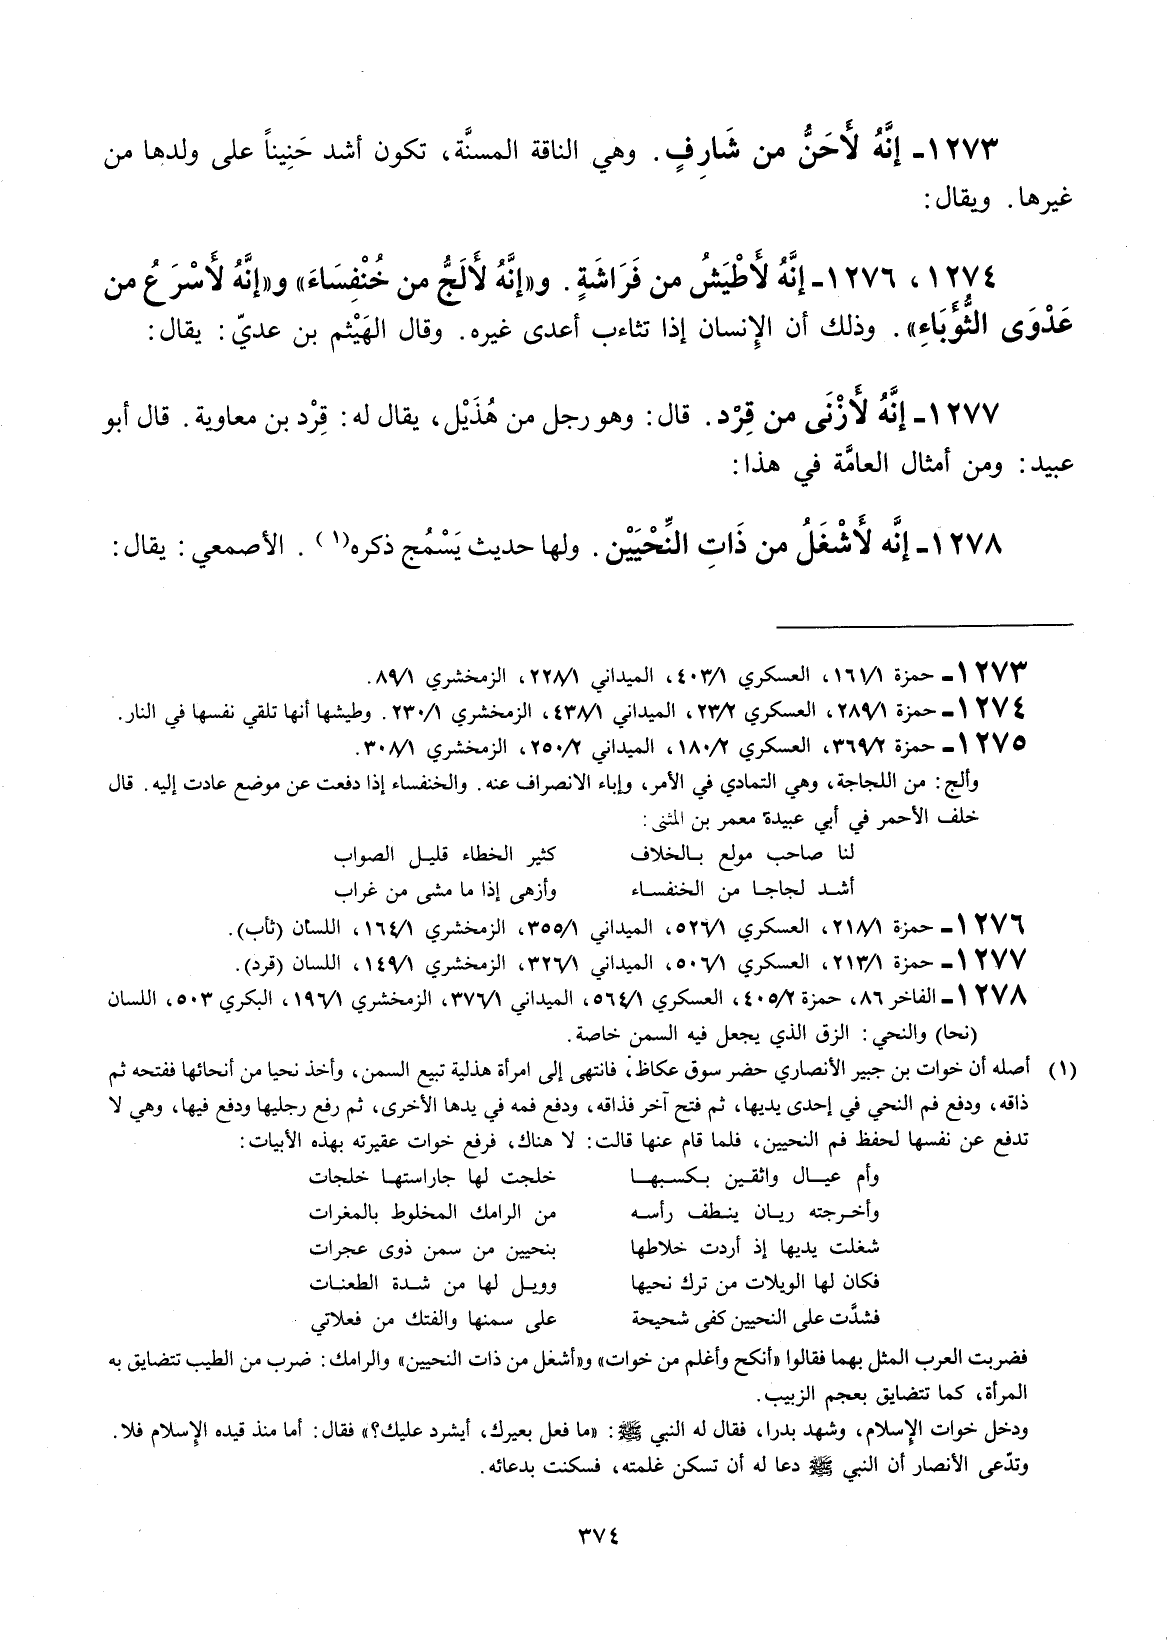 ١٢٧٣ـ إنَّهُ لَأَحَنُّ من شَارِفٍ. وهي الناقة المسنَّة، تكون أشد حَنِيناً على ولدها من
غيرها. ويقال:
١٢٧٤، ١٢٧٦ـ إنَّهُ لَأَطْيَشُ من فَرَاشَةٍ. و«إنَّهُ لَأَلَجُّ من خُنْفِسَاءَ» و«إنَّهُ لَأَسْرَعُ من
عَدْوَى الثُّؤَبَاءِ». وذلك أن الإِنسان إذا تثاءب أعدى غيره. وقال الهَيْثم بن عديّ: يقال:
١٢٧٧ـ إنَّهُ لَأَزْنَى من قِرْد. قال: وهو رجل من هُذَيْل، يقال له: قِرْد بن معاوية. قال أبو
عبيد: ومن أمثال العامَّة في هذا:
١٢٧٨ـ إنَّه لَأَشْغَلُ من ذَاتِ النِّحْيَيْن. ولها حديث يَسْمُج ذكره(١). الأصمعي: يقال:
١٢٧٣ـ حمزة ١٦١/١، العسكري ٤٠٣/١، الميداني ٢٢٨/١، الزمخشري ٨٩/١.
١٢٧٤ـ حمزة ٢٨٩/١، العسكري ٢٣/٢، الميداني ٤٣٨/١، الزمخشري ٢٣٠/١. وطيشها أنها تلقي نفسها في النار.
١٢٧٥ـ حمزة ٣٦٩/٢، العسكري ١٨٠/٢، الميداني ٢٥٠/٢، الزمخشري ٣٠٨/١.
وألج: من اللجاجة، وهي التمادي في الأمر، وإباء الانصراف عنه. والخنفساء إذا دفعت عن موضع عادت إليه. قال
خلف الأحمر في أبي عبيدة معمر بن المثنى:
لنا صاحب مولع بالخلاف كثير الخطاء قليل الصواب
أشد لجاجا من الخنفساء وأزهى إذا ما مشى من غراب
١٢٧٦ـ حمزة ٢١٨/١، العسكري ٥٢٦/١، الميداني ٣٥٥/١، الزمخشري ١٦٤/١، اللسان (ثأب).
١٢٧٧ـ حمزة ٢١٣/١، العسكري ٥٠٦/١، الميداني ٣٢٦/١، الزمخشري ١٤٩/١، اللسان (قرد).
١٢٧٨ـ الفاخر ٨٦، حمزة ٤٠٥/٢، العسكري ٥٦٤/١، الميداني ٣٧٦/١، الزمخشري ١٩٦/١، البكري ٥٠٣، اللسان
(نحا) والنحي: الزق الذي يجعل فيه السمن خاصة.
(١) أصله أن خوات بن جبير الأنصاري حضر سوق عكاظ، فانتهى إلى امرأة هذلية تبيع السمن، وأخذ نحيا من أنحائها ففتحه ثم
ذاقه، ودفع فم النحي في إحدى يديها، ثم فتح آخر فذاقه، ودفع فمه في يدها الأخرى، ثم رفع رجليها ودفع فيها، وهي لا
تدفع عن نفسها لحفظ فم النحيين، فلما قام عنها قالت: لا هناك، فرفع خوات عقيرته بهذه الأبيات:
وأم عيال واثقين بكسبها خلجت لها جاراستها خلجات
وأخرجته ريان ينطف رأسه من الرامك المخلوط بالمغرات
شغلت يديها إذ أردت خلاطها بنحيين من سمن ذوى عجرات
فكان لها الويلات من ترك نحيها وويل لها من شدة الطعنات
فشدَّت على النحيين كفى شحيحة على سمنها والفتك من فعلاتي
فضربت العرب المثل بهما فقالوا «أنكح وأغلم من خوات» و«أشغل من ذات النحيين» والرامك: ضرب من الطيب تتضايق به
المرأة، كما تتضايق بعجم الزبيب.
ودخل خوات الإِسلام، وشهد بدرا، فقال له النبي ﷺ: «ما فعل بعيرك، أيشرد عليك؟» فقال: أما منذ قيده الإِسلام فلا.
وتدّعى الأنصار أن النبي ﷺ دعا له أن تسكن غلمته، فسكنت بدعائه.
٣٧٤